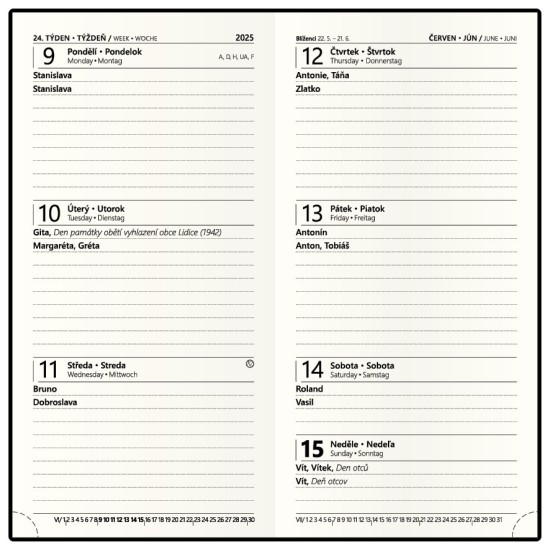 24. TÝDEN • TÝŽDEŇ / WEEK • WOCHE 2025
9 Pondělí • Pondelok
Monday • Montag
A, D, H, UA, F
Stanislava
Stanislava
10 Úterý • Utorok
Tuesday • Dienstag
Gita, Den památky obětí vyhlazení obce Lidice (1942)
Margaréta, Gréta
11 Středa • Streda
Wednesday • Mittwoch
Bruno
Dobroslava
VI/1 2 3 4 5 6 7 8 9 10 11 12 13 14 15 16 17 18 19 20 21 22 23 24 25 26 27 28 29 30
Blíženci 22. 5. – 21. 6. ČERVEN • JÚN / JUNE • JUNI
12 Čtvrtek • Štvrtok
Thursday • Donnerstag
Antonie, Táňa
Zlatko
13 Pátek • Piatok
Friday • Freitag
Antonín
Anton, Tobiáš
14 Sobota • Sobota
Saturday • Samstag
Roland
Vasil
15 Neděle • Nedeľa
Sunday • Sonntag
Vít, Vítek, Den otců
Vít, Deň otcov
VII/1 2 3 4 5 6 7 8 9 10 11 12 13 14 15 16 17 18 19 20 21 22 23 24 25 26 27 28 29 30 31